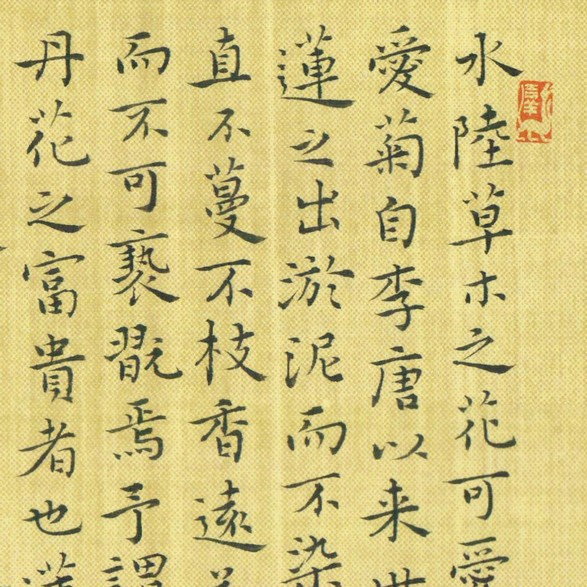 水陸草木之花可愛
愛菊自李唐以来世
蓮之出淤泥而不染
直不蔓不枝香遠益
而不可褻翫焉予謂
丹花之富貴者也蓮